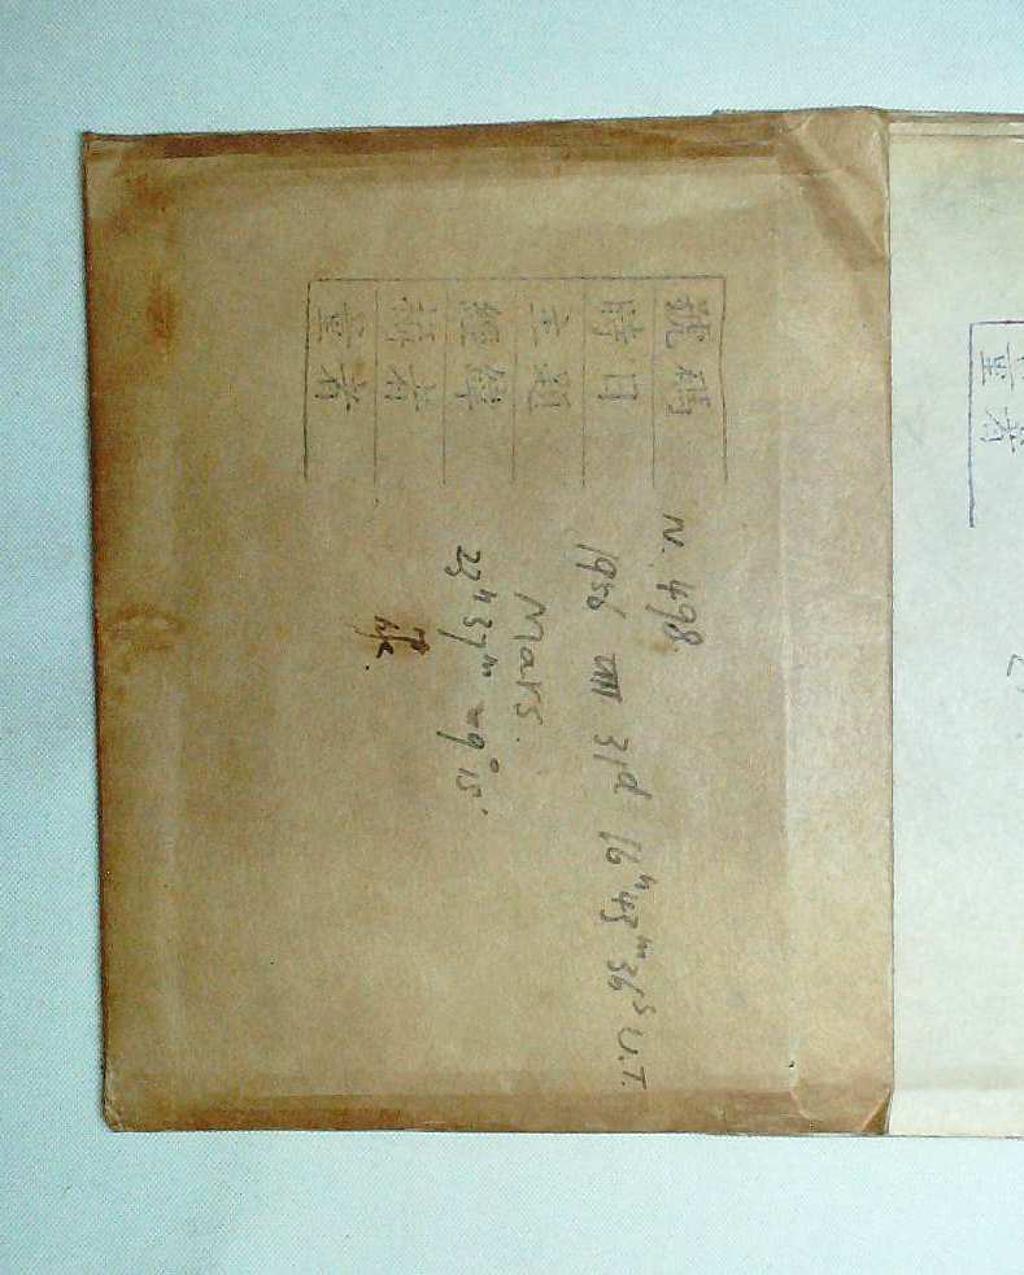 號碼 N. 498
時日 1956 VIII 31d 16h 43m 36s U.T.
主題 Mars.
經緯 23h 37m -9° 15'
者
量者
量者